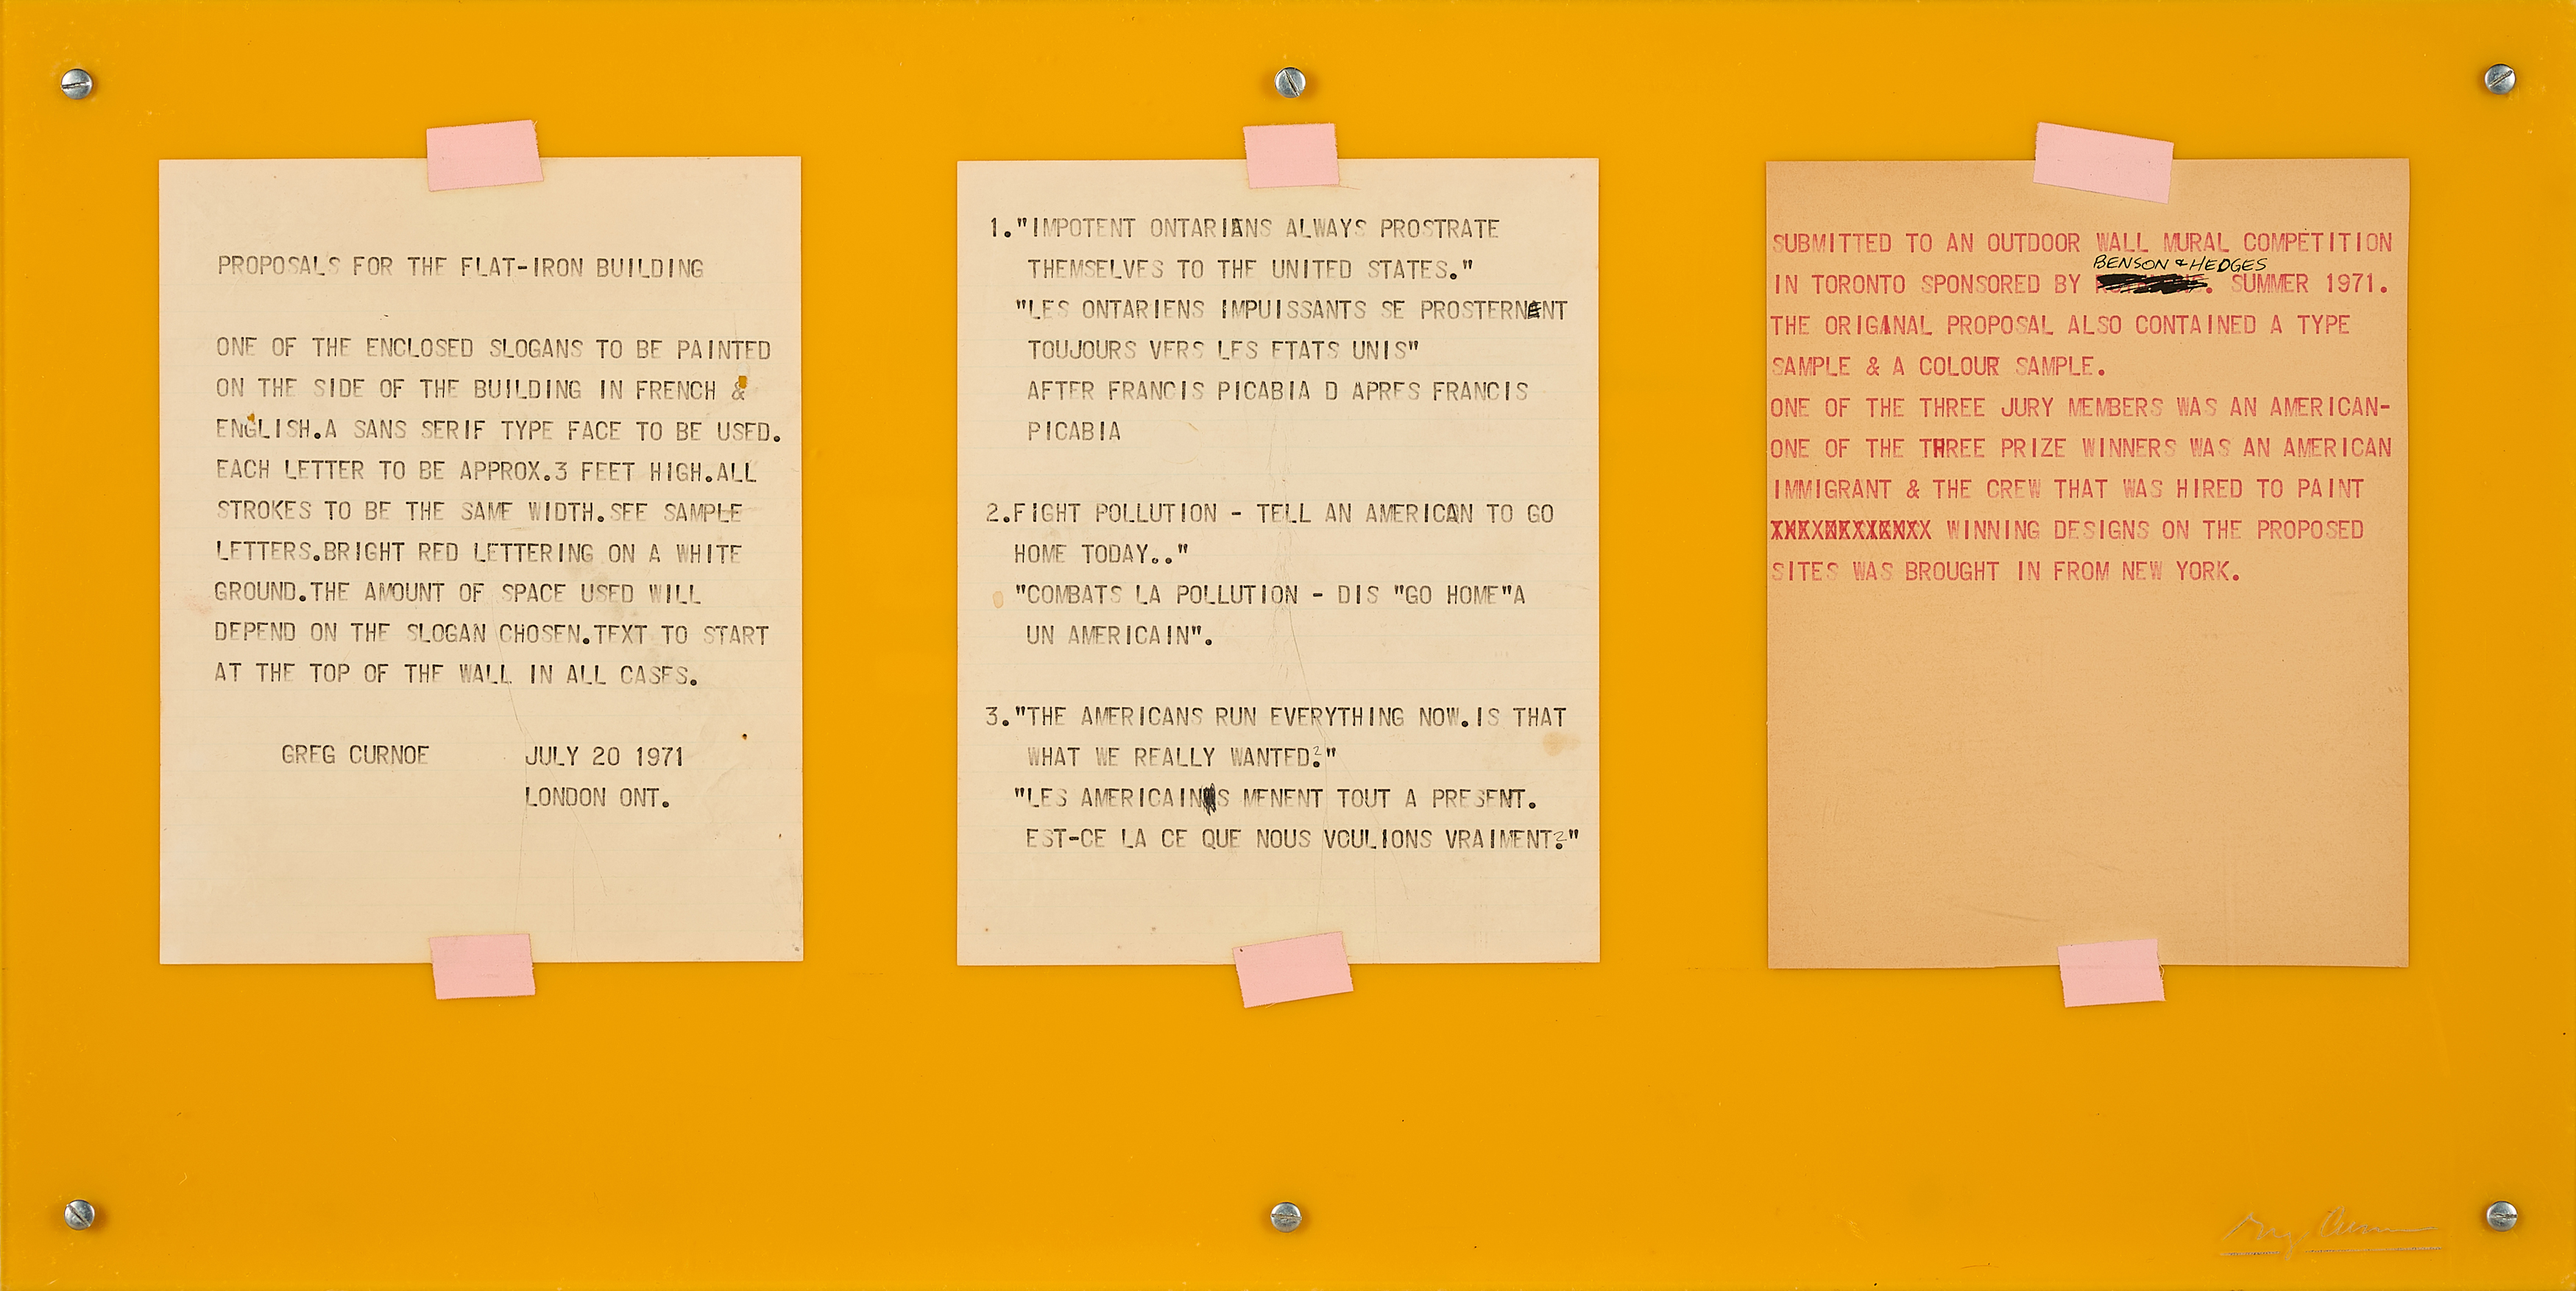 PROPOSALS FOR THE FLAT-IRON BUILDING
ONE OF THE ENCLOSED SLOGANS TO BE PAINTED
ON THE SIDE OF THE BUILDING IN FRENCH &
ENGLISH.A SANS SERIF TYPE FACE TO BE USED.
EACH LETTER TO BE APPROX.3 FEET HIGH.ALL
STROKES TO BE THE SAME WIDTH.SEE SAMPLE
LETTERS.BRIGHT RED LETTERING ON A WHITE
GROUND.THE AMOUNT OF SPACE USED WILL
DEPEND ON THE SLOGAN CHOSEN.TEXT TO START
AT THE TOP OF THE WALL IN ALL CASES.
GREG CURNOE JULY 20 1971
LONDON ONT.
1."IMPOTENT ONTARIANS ALWAYS PROSTRATE
THEMSELVES TO THE UNITED STATES."
"LES ONTARIENS IMPUISSANTS SE PROSTERNENT
TOUJOURS VERS LES ETATS UNIS"
AFTER FRANCIS PICABIA D APRES FRANCIS
PICABIA
2.FIGHT POLLUTION - TELL AN AMERICAN TO GO
HOME TODAY.."
"COMBATS LA POLLUTION - DIS "GO HOME"A
UN AMERICAIN".
3."THE AMERICANS RUN EVERYTHING NOW.IS THAT
WHAT WE REALLY WANTED?"
"LES AMERICAINS MENENT TOUT A PRESENT.
EST-CE LA CE QUE NOUS VOULIONS VRAIMENT?"
SUBMITTED TO AN OUTDOOR WALL MURAL COMPETITION
BENSON & HEDGES
IN TORONTO SPONSORED BY . SUMMER 1971.
THE ORIGINAL PROPOSAL ALSO CONTAINED A TYPE
SAMPLE & A COLOUR SAMPLE.
ONE OF THE THREE JURY MEMBERS WAS AN AMERICAN-
ONE OF THE THREE PRIZE WINNERS WAS AN AMERICAN
IMMIGRANT & THE CREW THAT WAS HIRED TO PAINT
WINNING DESIGNS ON THE PROPOSED
SITES WAS BROUGHT IN FROM NEW YORK.
Greg Curnoe